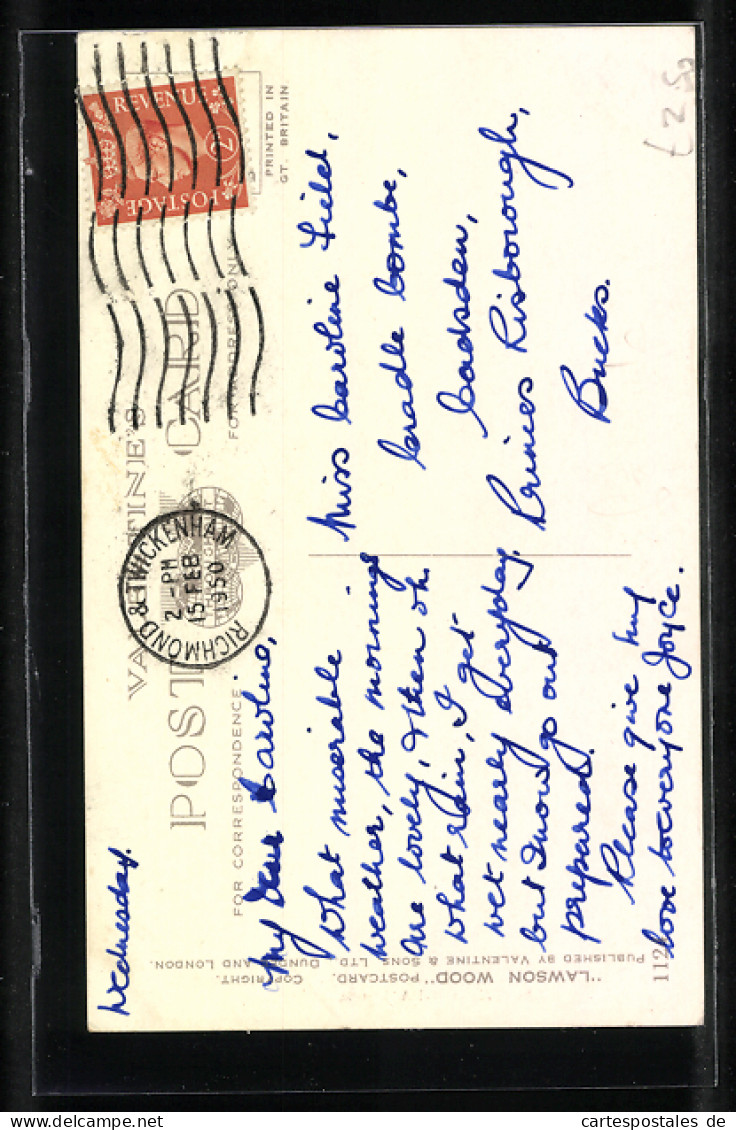 Wednesday.
VALENTINE'S
POST CARD
FOR CORRESPONDENCE
FOR ADDRESS ONLY
PRINTED IN
GT. BRITAIN
REVENUE
POSTAGE
RICHMOND & TWICKENHAM
2 - PM
15 FEB
1950
£2.50
My Dear Caroline,
What miserable
weather, the mornings
are lovely, & then oh.
what rain, I get
wet nearly everyday,
but I now go out
prepared.
Please give my
love to everyone Joyce.
Miss Caroline Field,
Cradle Combe,
Cadsden,
Princes Risborough,
Bucks.
"LAWSON WOOD" POSTCARD. COPYRIGHT.
PUBLISHED BY VALENTINE & SONS, LTD. DUNDEE AND LONDON.
cartespostales de
© cartespostales de